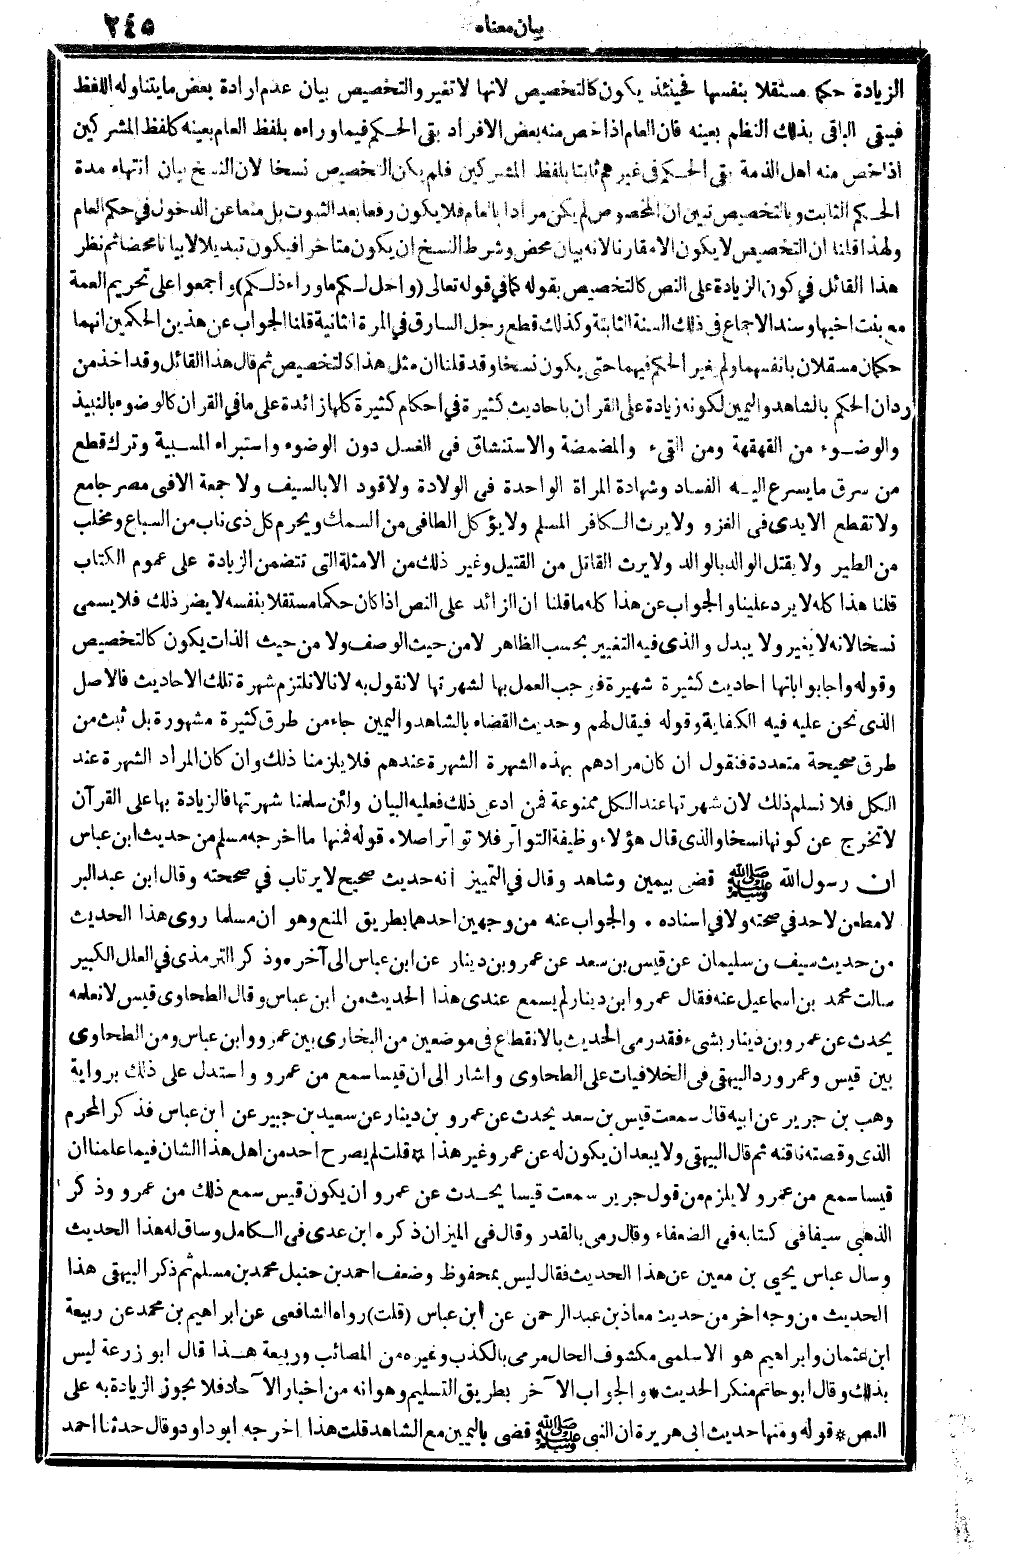 بيان معناه ٢٤٥
الزيادة حكما مستقلا بنفسها فحينئذ يكون كالتخصيص لانها لا تغير والتخصيص بيان عدم ارادة بعض ما يتناوله اللفظ
فيبقى الباقى بذلك النظم بعينه فان العام اذا خص منه بعض الافراد بقى الحكم فيما وراءه بلفظ العام بعينه كلفظ المشركين
اذا خص منه اهل الذمة بقى الحكم فى غيرهم ثابتا بلفظ المشركين فلم يكن التخصيص نسخا لان النسخ بيان انتهاء مدة
الحكم الثابت وبالتخصيص تبين ان المخصوص لم يكن مرادا بالعام فلا يكون رفعا بعد الثبوت بل منعا عن الدخول في حكم العام
ولهذا قلنا ان التخصيص لا يكون الا مقارنا لانه بيان محض وشرط النسخ ان يكون متاخرا فيكون تبديلا لا بيانا محضا ثم نظر
هذا القائل في كون الزيادة على النص كالتخصيص بقوله كما في قوله تعالى (واحل لكم ما وراء ذلكم) واجمعوا على تحريم العمة
مع بنت اخيها وسند الاجماع فى ذلك السنة الثابتة وكذلك قطع رجل السارق في المرة الثانية قلنا الجواب عن هذين الحكمين انهما
حكمان مسقلان بانفسهما ولم يغير الحكم فيهما حتى يكون نسخا وقد قلنا ان مثل هذا كالتخصيص ثم قال هذا القائل وقد اخذ من
رد ان الحكم بالشاهد واليمين لكونه زيادة على القران باحاديث كثيرة في احكام كثيرة كلها زائدة على ما في القران كالوضوء بالنبيذ
والوضوء من القهقهة ومن القىء والمضمضة والاستنشاق فى الغسل دون الوضوء واستبراء المسبية وترك قطع
من سرق ما يسرع اليه الفساد وشهادة المراة الواحدة فى الولادة ولا قود الا بالسيف ولا جمعة الا فى مصر جامع
ولا تقطع الايدى فى الغزو ولا يرث الكافر المسلم ولا يؤكل الطافى من السمك ويحرم كل ذى ناب من السباع ومخلب
من الطير ولا يقتل الوالد بالوالد ولا يرث القاتل من القتيل وغير ذلك من الامثلة التى تتضمن الزيادة على عموم الكتاب
قلنا هذا كله لا يرد علينا والجواب عن هذا كله ما قلنا ان الزائد على النص اذا كان حكما مستقلا بنفسه لا يضر ذلك فلا يسمى
نسخا لانه لا يغير ولا يبدل والذى فيه التغيير بحسب الظاهر لا من حيث الوصف ولا من حيث الذات يكون كالتخصيص
وقوله واجابوا بانها احاديث كثيرة شهيرة فوجب العمل بها لشهرتها لا نقول به لانا لا نلتزم شهرة تلك الاحاديث فالاصل
الذى نحن عليه فيه الكفاية وقوله فيقال لهم وحديث القضاء بالشاهد واليمين جاء من طرق كثيرة مشهورة بل ثبت من
طرق صحيحة متعددة فنقول ان كان مرادهم بهذه الشهرة الشهرة عندهم فلا يلزمنا ذلك وان كان المراد الشهرة عند
الكل فلا نسلم ذلك لان شهرتها عند الكل ممنوعة فمن ادعى ذلك فعليه البيان ولئن سلمنا شهرتها فالزيادة بها على القرآن
لا تخرج عن كونها نسخا والذى قال هؤلاء وظيفة التواتر فلا تواتر اصلا ٠ قوله فمنها ما اخرجه مسلم من حديث ابن عباس
ان رسول الله ﷺ قضى بيمين وشاهد وقال في التمييز انه حديث صحيح لا يرتاب في صحته وقال ابن عبد البر
لا مطعن لاحد في صحته ولا في اسناده ٠ والجواب عنه من وجهين احدهما بطريق المنع وهو ان مسلما روى هذا الحديث
من حديث سيف بن سليمان عن قيس بن سعد عن عمرو بن دينار عن ابن عباس الى آخره وذكر الترمذى في العلل الكبير
سالت محمد بن اسماعيل عنه فقال عمرو بن دينار لم يسمع عندى هذا الحديث من ابن عباس وقال الطحاوى قيس لا نعلمه
يحدث عن عمرو بن دينار بشىء فقد رمى الحديث بالانقطاع فى موضعين من البخارى بين عمرو وابن عباس ومن الطحاوى
بين قيس وعمرو رد البيهقى فى الخلافيات على الطحاوى واشار الى ان قيسا سمع من عمرو واستدل على ذلك برواية
وهب بن جرير عن ابيه قال سمعت قيس بن سعد يحدث عن عمرو بن دينار عن سعيد بن جبير عن ابن عباس فذكر المحرم
الذى وقصته ناقته ثم قال البيهقى ولا يبعد ان يكون له عن عمرو غير هذا * قلت لم يصرح احد من اهل هذا الشان فيما علمنا ان
قيسا سمع من عمرو لا يلزم من قول جرير سمعت قيسا يحدث عن عمرو ان يكون قيس سمع ذلك من عمرو وذكر
الذهبى سيفا فى كتابه فى الضعفاء وقال رمى بالقدر وقال في الميزان ذكره ابن عدى فى الكامل وساق له هذا الحديث
وسال عباس يحيى بن معين عن هذا الحديث فقال ليس بمحفوظ وضعف احمد بن حنبل محمد بن مسلم ثم ذكر البيهقى هذا
الحديث من وجه اخر من حديث معاذ بن عبد الرحمن عن ابن عباس (قلت) رواه الشافعى عن ابراهيم بن محمد عن ربيعة
ابن عثمان وابراهيم هو الاسلمى مكشوف الحال مرمى بالكذب وغيره من المصائب وربيعة هذا قال ابو زرعة ليس
بذلك وقال ابو حاتم منكر الحديث * والجواب الآخر بطريق التسليم وهو انه من اخبار الآحاد فلا يجوز الزيادة به على
النص * قوله ومنها حديث ابى هريرة ان النبى ﷺ قضى باليمين مع الشاهد قلت هذا اخرجه ابو داود وقال حدثنا احمد